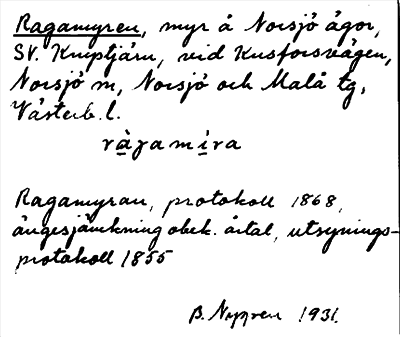 Ragamyren, myr å Norsjö ägor,
SV. Knoptjärn, vid Kusforsvägen,
Norsjö sn, Norsjö och Malå tg,
Västerb. l.
ràgami̱ra
Ragamyran, protokoll 1868,
ängesjämkning obek. årtal, utsynings-
protokoll 1855
B. Nygren 1931.